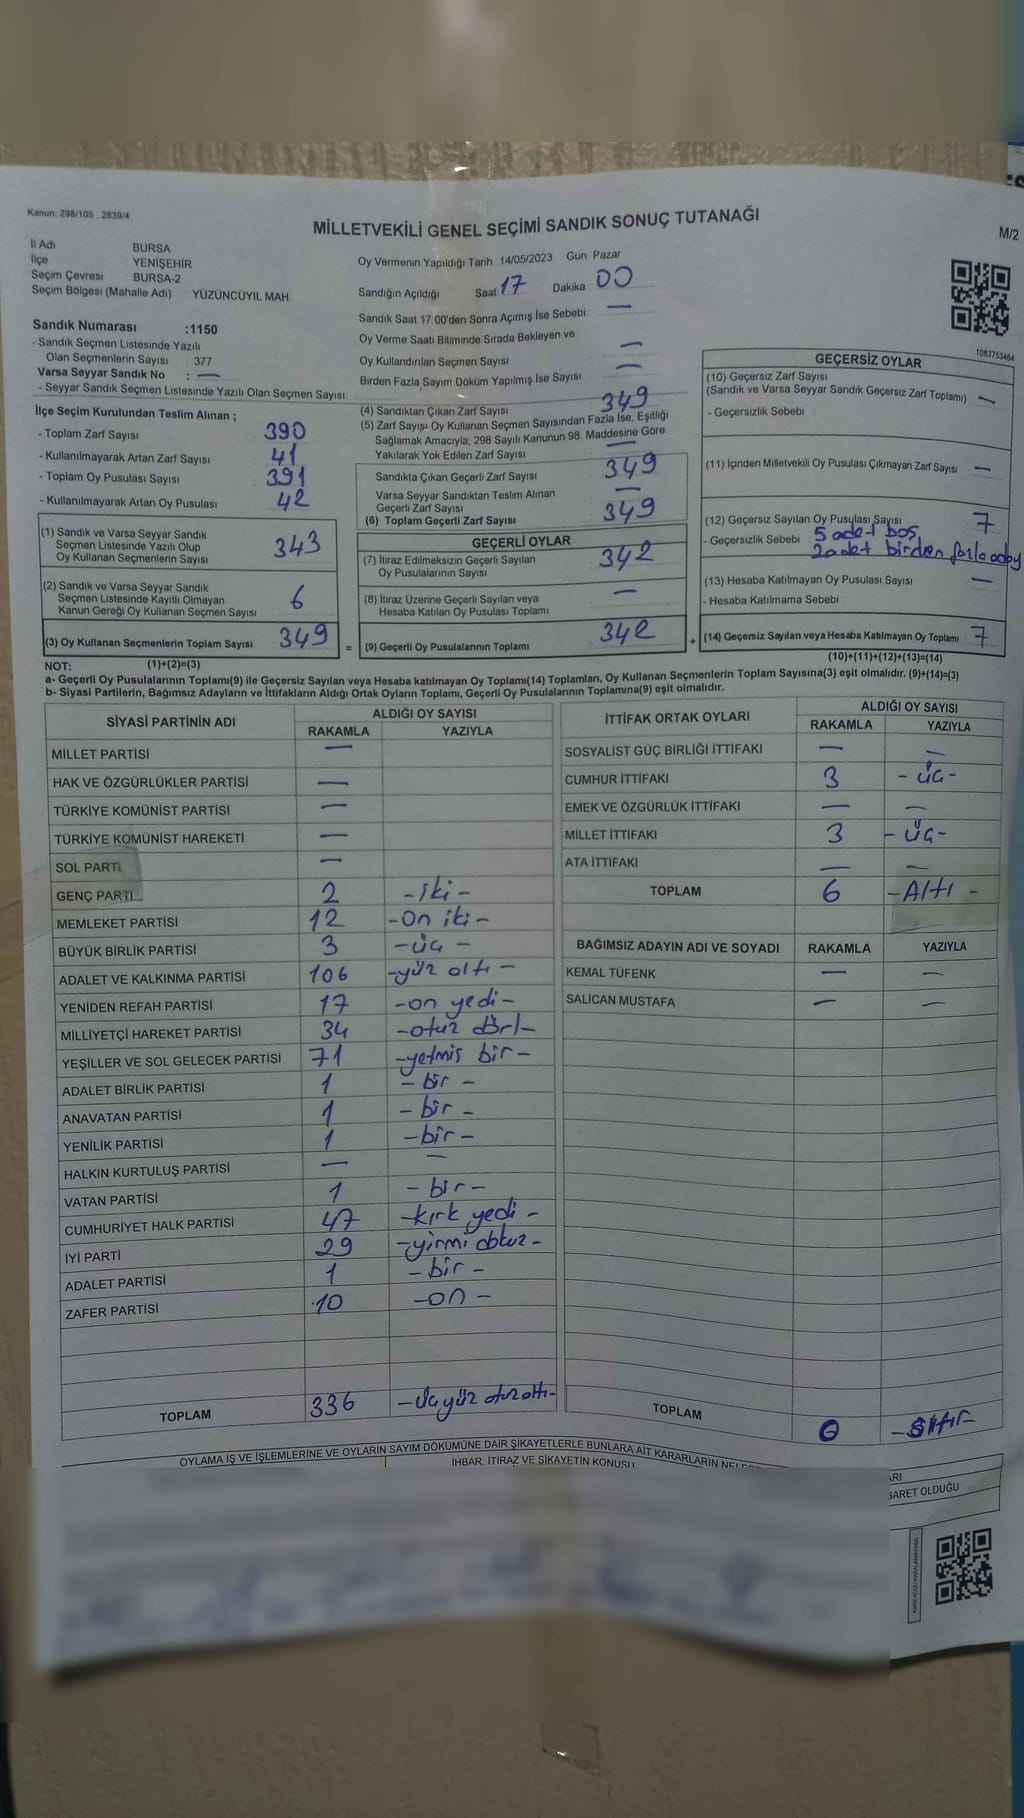 Kanun: 298/105 , 2839/4
MİLLETVEKİLİ GENEL SEÇİMİ SANDIK SONUÇ TUTANAĞI
M/2
İl Adı BURSA
İlçe YENİŞEHİR
Seçim Çevresi BURSA-2
Seçim Bölgesi (Mahalle Adı) : YÜZÜNCÜYIL MAH.
Sandık Numarası :1150
- Sandık Seçmen Listesinde Yazılı
Olan Seçmenlerin Sayısı : 377
Varsa Seyyar Sandık No : —
- Seyyar Sandık Seçmen Listesinde Yazılı Olan Seçmen Sayısı
Oy Vermenin Yapıldığı Tarih 14/05/2023 Gün: Pazar
Sandığın Açıldığı Saat 17 Dakika : 00
Sandık Saat 17:00'den Sonra Açımış İse Sebebi : —
Oy Verme Saati Bitiminde Sırada Bekleyen ve
Oy Kullandırılan Seçmen Sayısı —
Birden Fazla Sayım Döküm Yapılmış İse Sayısı —
İlçe Seçim Kurulundan Teslim Alınan ;
- Toplam Zarf Sayısı 390
- Kullanılmayarak Artan Zarf Sayısı 41
- Toplam Oy Pusulası Sayısı 391
- Kullanılmayarak Artan Oy Pusulası 42
(1) Sandık ve Varsa Seyyar Sandık
Seçmen Listesinde Yazılı Olup
Oy Kullanan Seçmenlerin Sayısı 343
(2) Sandık ve Varsa Seyyar Sandık
Seçmen Listesinde Kayıtlı Olmayan
Kanun Gereği Oy Kullanan Seçmen Sayısı 6
(3) Oy Kullanan Seçmenlerin Toplam Sayısı 349 =
(4) Sandıktan Çıkan Zarf Sayısı 349
(5) Zarf Sayısı Oy Kullanan Seçmen Sayısından Fazla İse, Eşitliği
Sağlamak Amacıyla, 298 Sayılı Kanunun 98. Maddesine Göre
Yakılarak Yok Edilen Zarf Sayısı —
Sandıkta Çıkan Geçerli Zarf Sayısı 349
Varsa Seyyar Sandıktan Teslim Alınan
Geçerli Zarf Sayısı —
(6) Toplam Geçerli Zarf Sayısı 349
GEÇERLİ OYLAR
(7) İtiraz Edilmeksizin Geçerli Sayılan
Oy Pusulalarının Sayısı 342
(8) İtiraz Üzerine Geçerli Sayılan veya
Hesaba Katılan Oy Pusulası Toplamı —
(9) Geçerli Oy Pusulalarının Toplamı 342 +
1083753464
GEÇERSİZ OYLAR
(10) Geçersiz Zarf Sayısı
(Sandık ve Varsa Seyyar Sandık Geçersiz Zarf Toplamı) —
- Geçersizlik Sebebi :
(11) İçinden Milletvekili Oy Pusulası Çıkmayan Zarf Sayısı —
(12) Geçersiz Sayılan Oy Pusulası Sayısı 7
- Geçersizlik Sebebi : 5 adet boş
2 adet birden fazla aday
(13) Hesaba Katılmayan Oy Pusulası Sayısı —
- Hesaba Katılmama Sebebi :
(14) Geçersiz Sayılan veya Hesaba Katılmayan Oy Toplamı 7
NOT: (1)+(2)=(3)
(10)+(11)+(12)+(13)=(14)
a- Geçerli Oy Pusulalarının Toplamı(9) ile Geçersiz Sayılan veya Hesaba katılmayan Oy Toplamı(14) Toplamları, Oy Kullanan Seçmenlerin Toplam Sayısına(3) eşit olmalıdır. (9)+(14)=(3)
b- Siyasi Partilerin, Bağımsız Adayların ve İttifakların Aldığı Ortak Oyların Toplamı, Geçerli Oy Pusulalarının Toplamına(9) eşit olmalıdır.
SİYASİ PARTİNİN ADI ALDIĞI OY SAYISI
RAKAMLA YAZIYLA
MİLLET PARTİSİ —
HAK VE ÖZGÜRLÜKLER PARTİSİ —
TÜRKİYE KOMÜNİST PARTİSİ —
TÜRKİYE KOMÜNİST HAREKETİ —
SOL PARTİ —
GENÇ PARTİ 2 -iki-
MEMLEKET PARTİSİ 12 -on iki-
BÜYÜK BİRLİK PARTİSİ 3 -üç -
ADALET VE KALKINMA PARTİSİ 106 -yüz altı-
YENİDEN REFAH PARTİSİ 17 -on yedi-
MİLLİYETÇİ HAREKET PARTİSİ 34 -otuz dört-
YEŞİLLER VE SOL GELECEK PARTİSİ 71 -yetmiş bir-
ADALET BİRLİK PARTİSİ 1 - bir -
ANAVATAN PARTİSİ 1 - bir -
YENİLİK PARTİSİ 1 -bir-
HALKIN KURTULUŞ PARTİSİ — —
VATAN PARTİSİ 1 - bir-
CUMHURİYET HALK PARTİSİ 47 -kırk yedi -
İYİ PARTİ 29 -yirmi dokuz-
ADALET PARTİSİ 1 - bir -
ZAFER PARTİSİ 10 -on -
TOPLAM 336 -üçyüz otuzaltı-
İTTİFAK ORTAK OYLARI ALDIĞI OY SAYISI
RAKAMLA YAZIYLA
SOSYALİST GÜÇ BİRLİĞİ İTTİFAKI — —
CUMHUR İTTİFAKI 3 - üç-
EMEK VE ÖZGÜRLÜK İTTİFAKI — —
MİLLET İTTİFAKI 3 - üç-
ATA İTTİFAKI — —
TOPLAM 6 -Altı -
BAĞIMSIZ ADAYIN ADI VE SOYADI RAKAMLA YAZIYLA
KEMAL TÜFENK — —
SALİCAN MUSTAFA — —
TOPLAM 0 -Sıfır-
OYLAMA İŞ VE İŞLEMLERİNE VE OYLARIN SAYIM DÖKÜMÜNE DAİR ŞİKAYETLERLE BUNLARA AİT KARARLARIN
İHBAR, İTİRAZ VE ŞİKAYETİN KONUSU